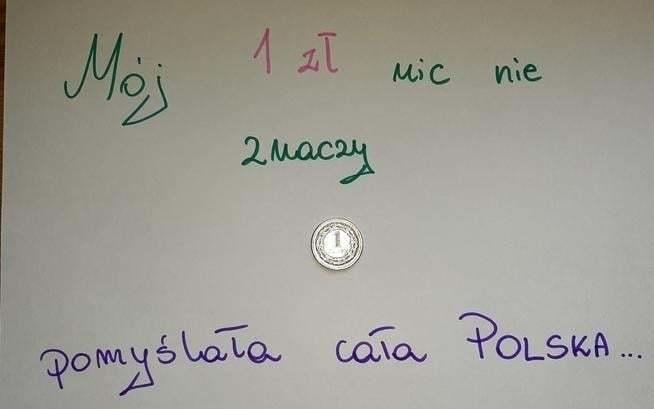 Mój 1 zł nic nie
znaczy
1
pomyślała cała POLSKA...